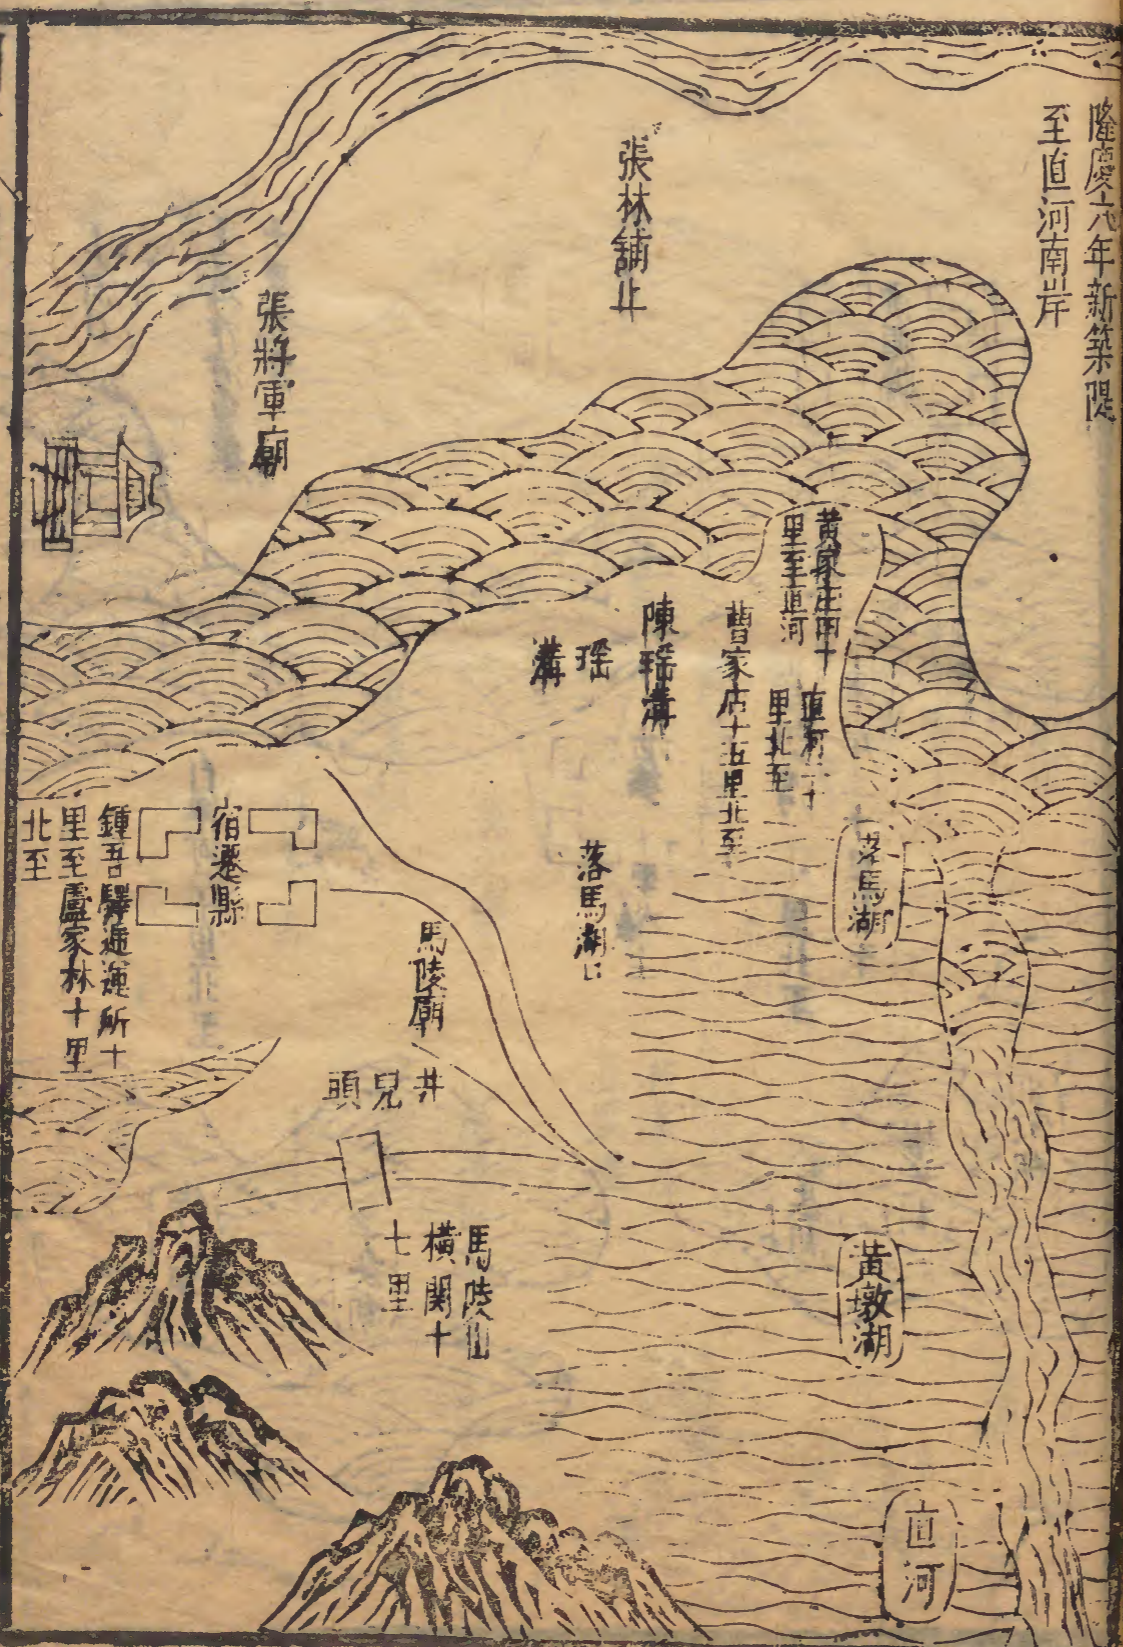 隆慶六年新築隄
至直河南岸
張林舖止
張將軍廟
黃家庄四十
里至直河
直河二十
里北至
曹家店十五里北至
陳瑶溝
瑶
溝
落馬湖
落馬湖口
宿遷縣
鍾吾驛遞運所十
里至盧家林十里
北至
馬陵廟
井兒頭
馬陵山
橫関十
七里
黃墩湖
直河